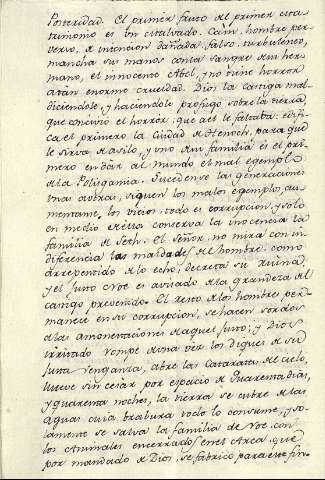 Posteridad. El primer fruto del primer ma
trimonio es un malvado. Cain, hombre per-
verso, de intencion dañada falso, turbulento,
mancha sus manos con la sangre de su her-
mano, el innocente Abel, y no tiene horror
a tan enorme crueldad. Dios la castiga mal-
diciendole, y haciendole profugo sobre la tierra,
que concivió el horror, que a el le faltaba: edifi-
ca el primero la Ciudad de Henoch, para que
le sirva de asilo, y uno de su familia es el pri-
mero en dár al mundo el mal egemplo
de la Poligamia. Sucedense las generaciones
unas a otras, siguen los malos egemplos, au-
mentanse los vicios: todo es corrupcion, y solo
en medio de ella conserva la inocencia la
familia de Seth. El Señor, no mira con in-
diferencia las maldades del hombre: como
arrepentido de lo echo, decreta su ruina,
y el Justo Noe es avisado de la grandeza del
castigo prevenido. El resto de los hombres per-
manece en su corrupcion, se hacen sordos
a las amonestaciones de aquel Justo; y Dios
irritado rompe de una vez los diques de su
Justa venganza, abre las Cataratas del cielo,
llueve sin cesar por espacio de Quarenta dias,
y quarenta noches, la tierra se cubre de las
aguas cuia brabura todo lo consume, y so-
lamente se salva la familia de Noe con
los Animales encerrados en el Arca, que
por mandado de Dios, se fabricó para este fin.